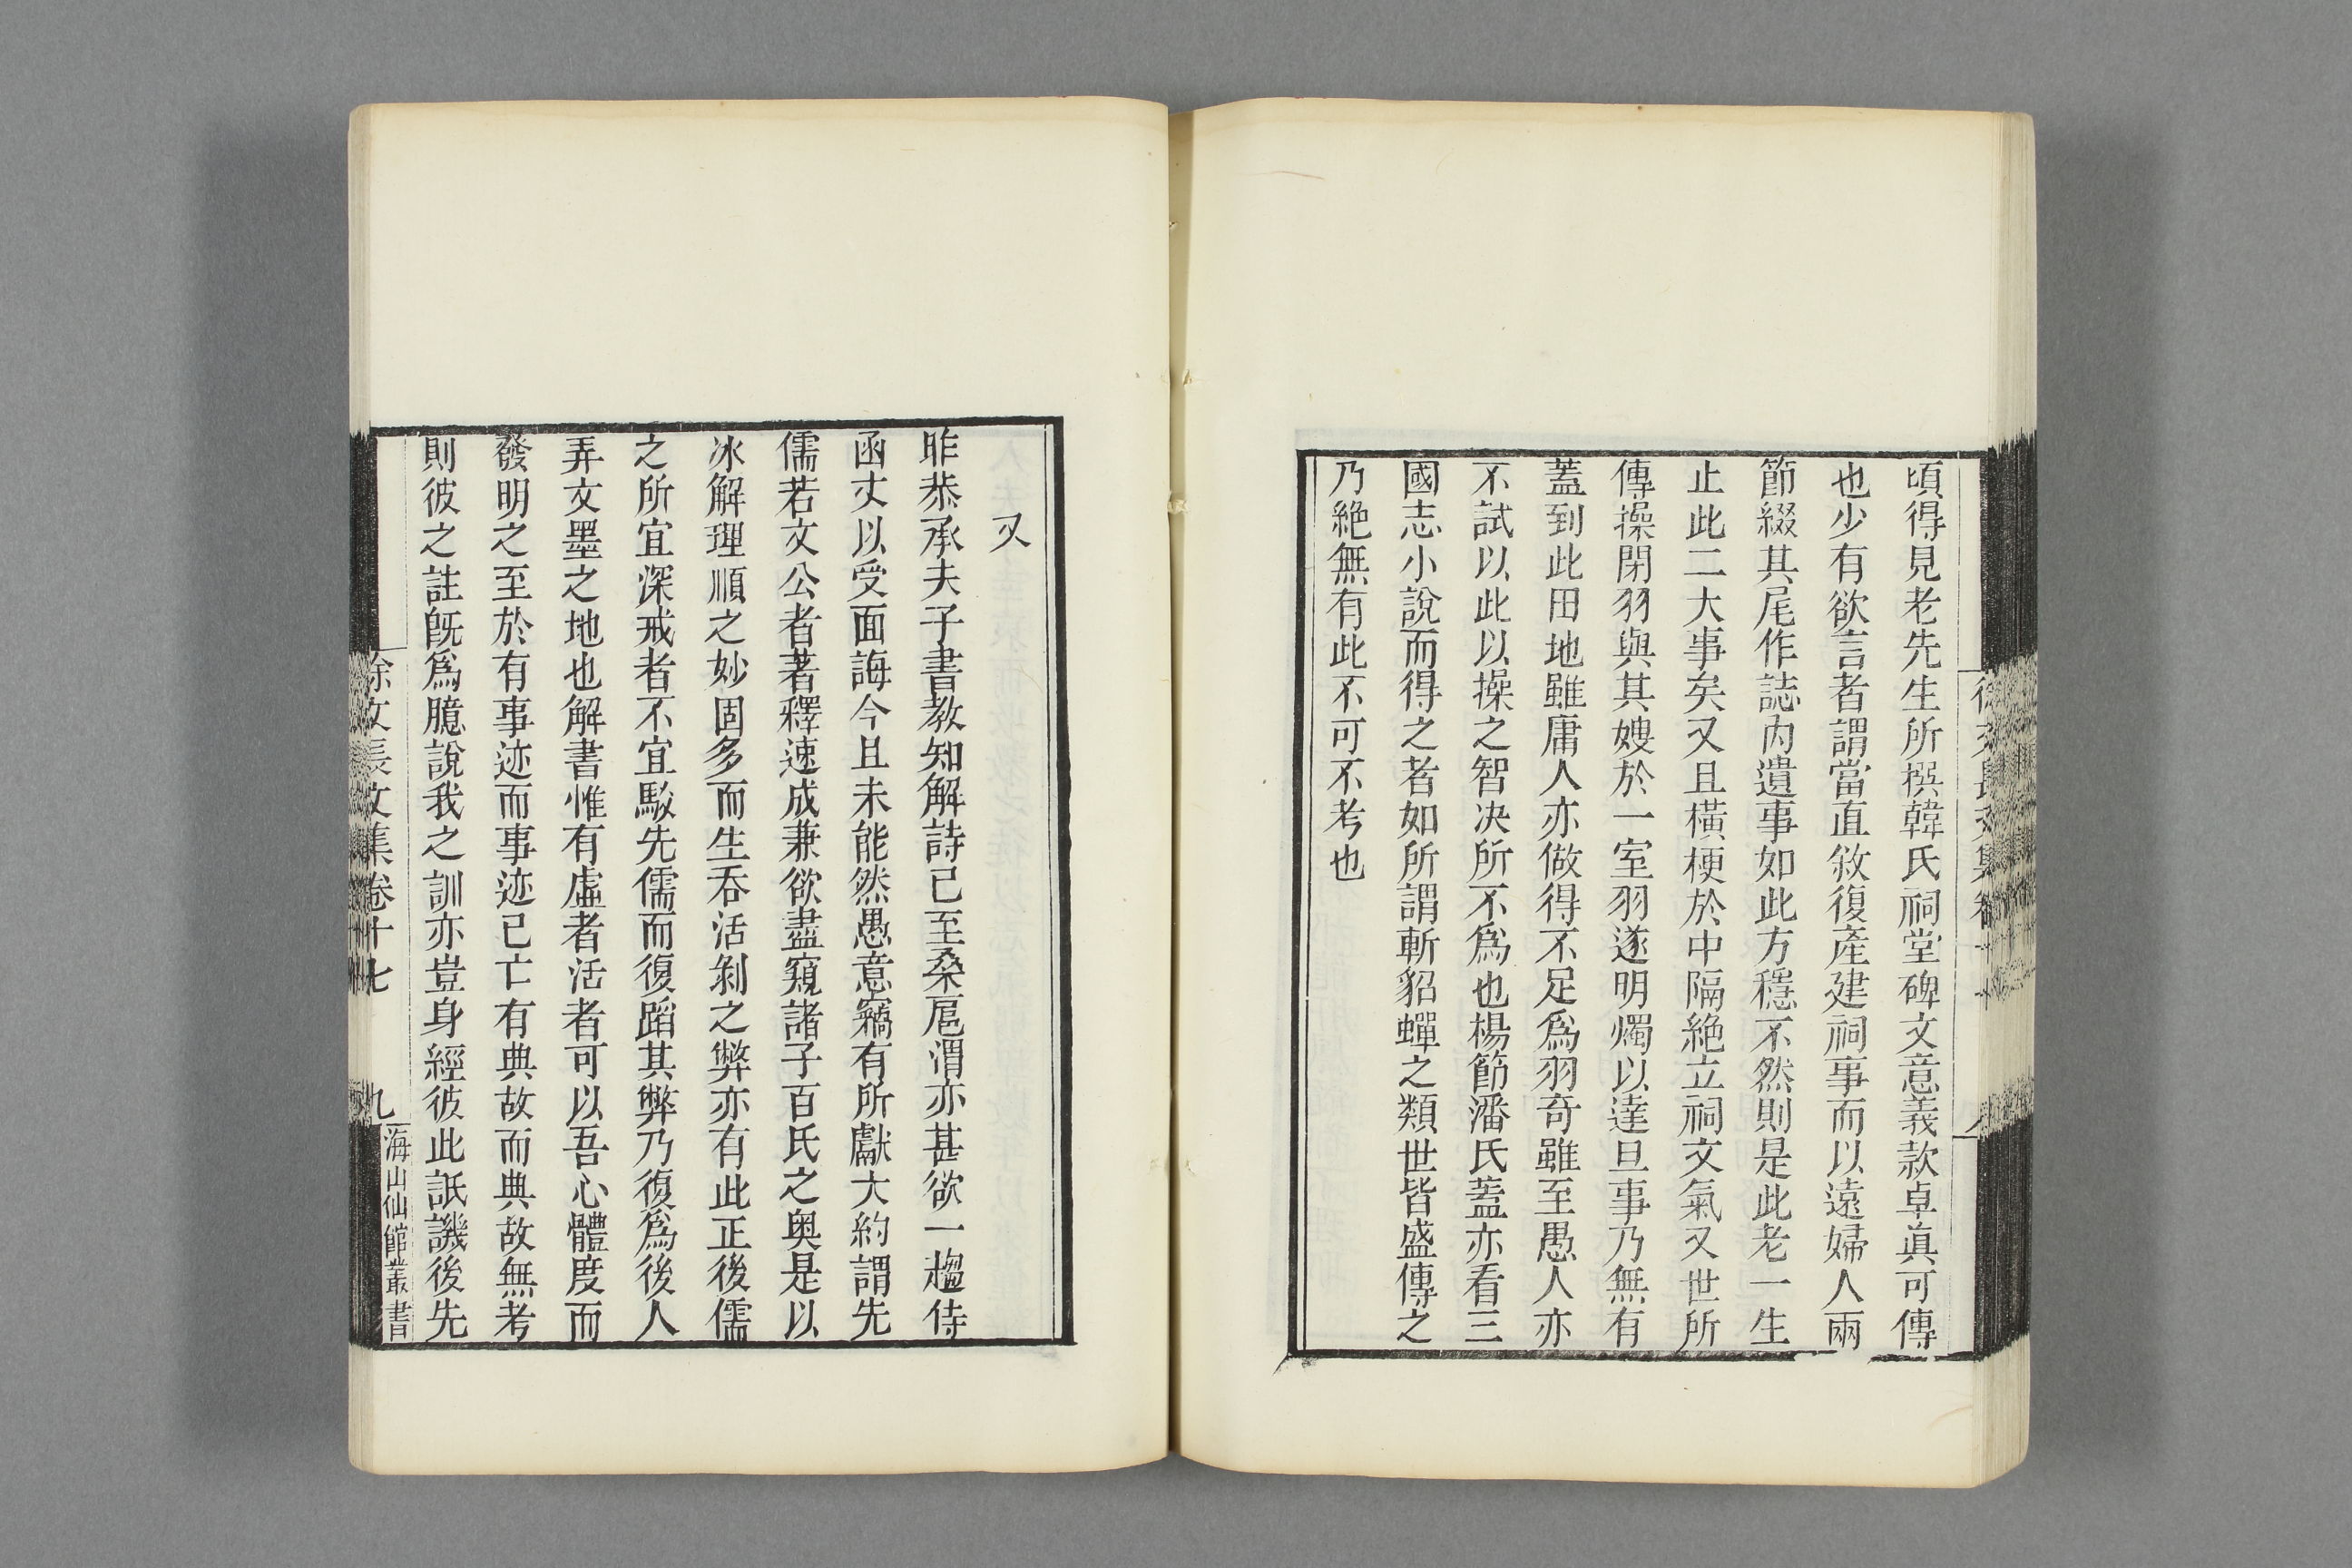 頃得見老先生所撰韓氏祠堂碑文意義款卓眞可傳
也少有欲言者謂當直敘復產建祠事而以遠婦人兩
節綴其尾作誌內遺事如此方穩不然則是此老一生
止此二大事矣又且橫梗於中隔絶立祠文氣又世所
傳操閉羽與其嫂於一室羽遂明燭以達旦事乃無有
蓋到此田地雖庸人亦做得不足爲羽奇雖至愚人亦
不試以此以操之智决所不爲也楊節潘氏蓋亦看三
國志小說而得之者如所謂斬貂蟬之類世皆盛傳之
乃絶無有此不可不考也
又
昨恭承夫子書教知解詩已至桑扈渭亦甚欲一趨侍
函丈以受面誨今且未能然愚意竊有所獻大約謂先
儒若文公者著釋速成兼欲盡窺諸子百氏之奥是以
冰解理順之妙固多而生吞活剝之弊亦有此正後儒
之所宜深戒者不宜駁先儒而復蹈其弊乃復爲後人
弄文墨之地也解書惟有虛者活者可以吾心體度而
發明之至於有事迹而事迹已亡有典故而典故無考
則彼之註旣爲臆說我之訓亦豈身經彼此詆譏後先
徐文長文集卷十七
九
海山仙館叢書